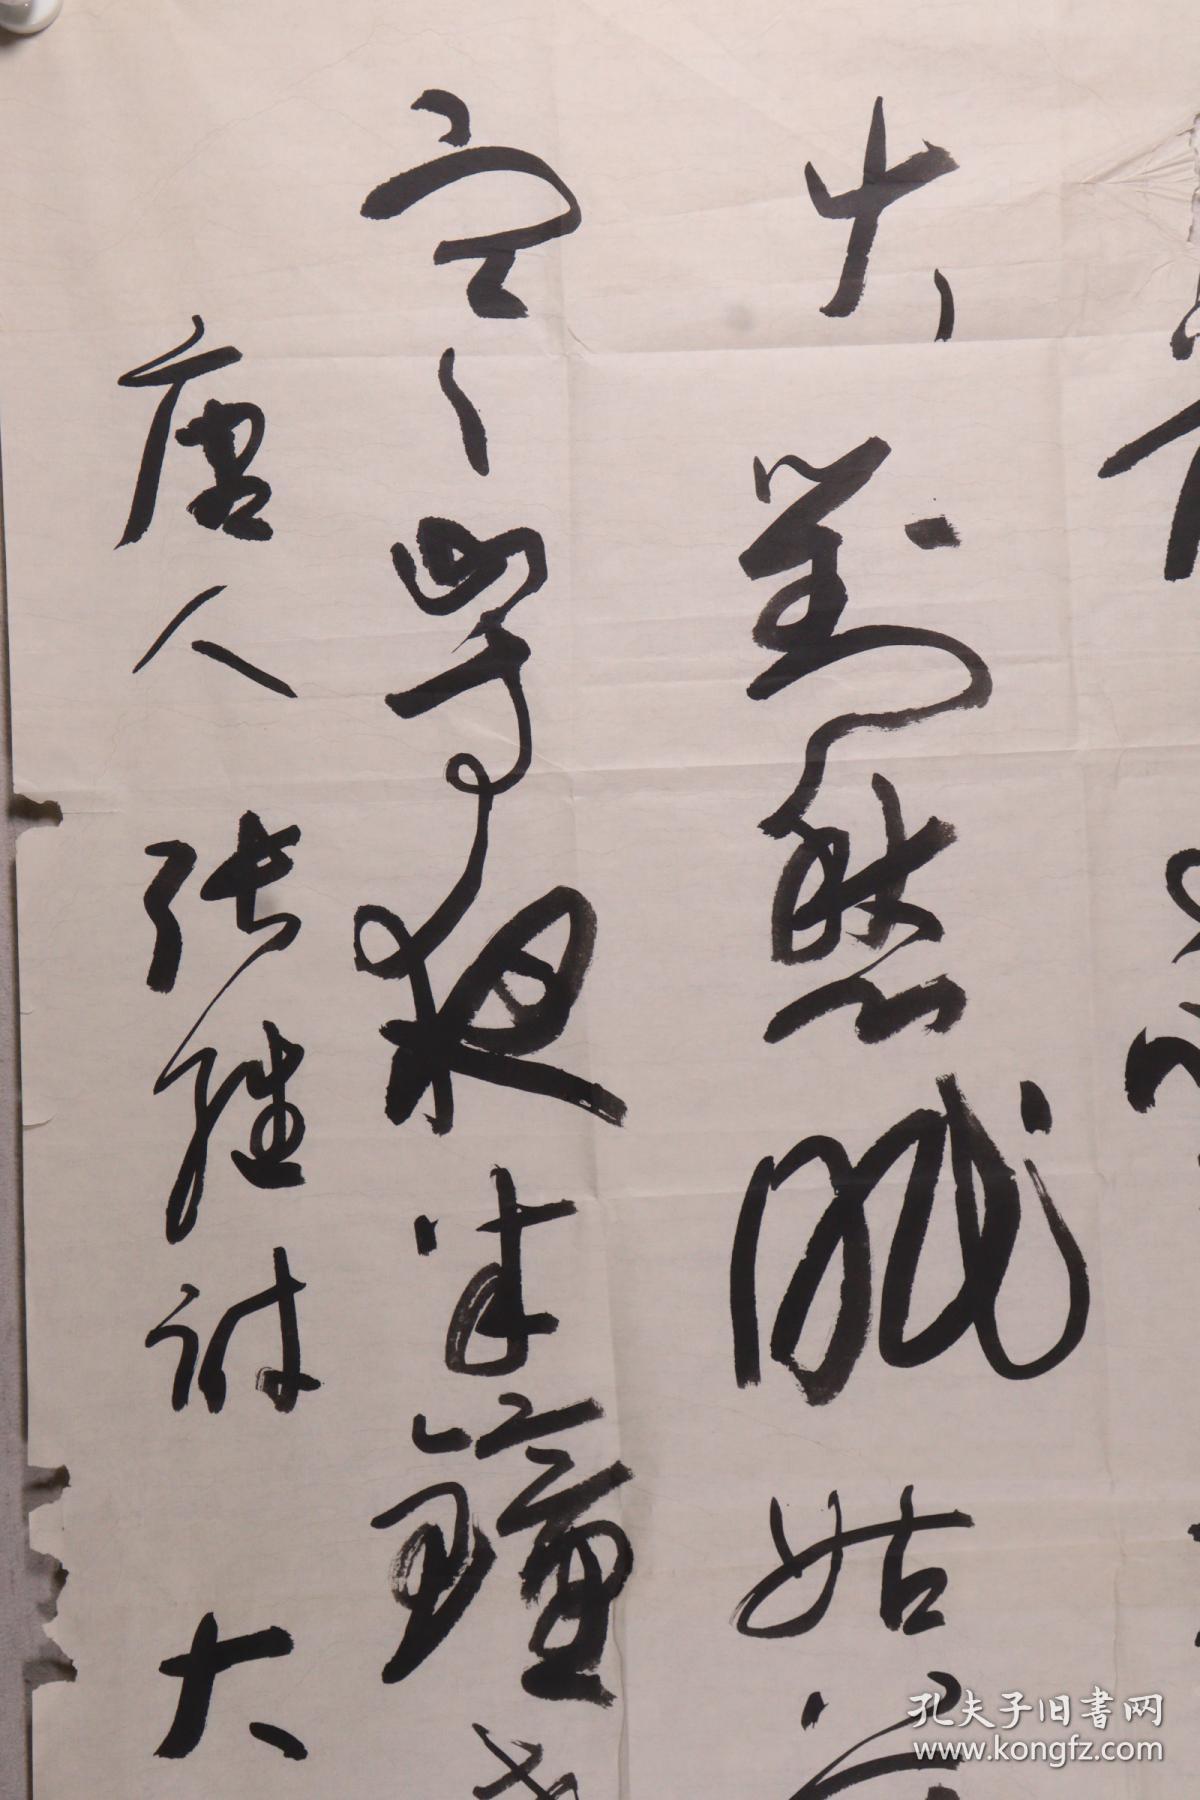 火對愁眠姑
寒山寺夜半鐘
唐人張繼詩 大
孔夫子旧書网
www.kongfz.com